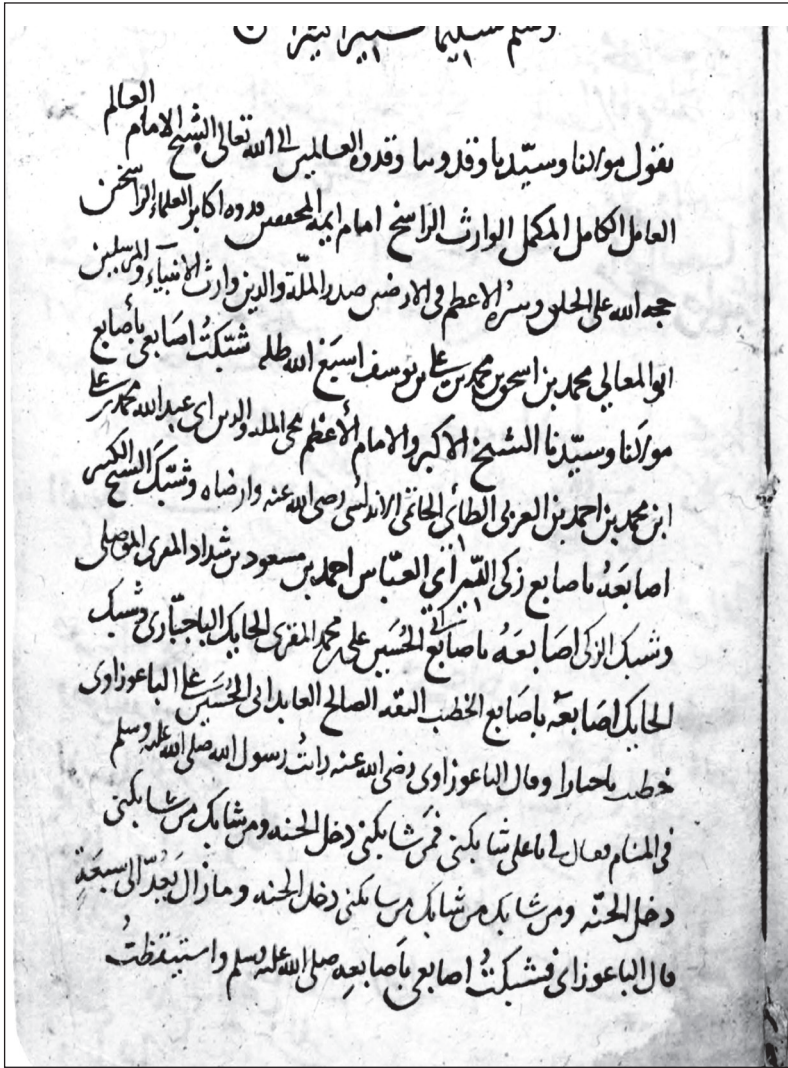 وسلم تسليما كثيرا كثيرا
يقول مولانا وسيّدنا وقدوتنا وقدوة العالمين الى الله تعالى الشيخ الامام العالم
العامل الكامل المكمل الوارث الراسخ امام ايمة المحققين قدوة اكابر العلماء الراسخين
حجة الله على الخلق وسرّه الاعظم فى الارضين صدر الملّة والدين وارث الانبيآء والمرسلين
ابو المعالي محمد بن اسحق بن محمد بن علي بن يوسف اسبغ الله ظله شبّكتُ اصابعي بأصابع
مولانا وسيّدنا الشيخ الاكبر والامام الأعظم محى الملة والدين ابى عبد الله محمد بن على
ابن محمد بن احمد بن العربى الطائى الحاتمى الاندلسى رضى الله عنه وارضاه وشبّك الشيخ الكبير
اصابعَهُ باصابع زكى الدين ابى العبّاس احمد بن مسعود بن شداد المقرى الموصلى
وشبك الزكى اصَابعَهُ باصَابع ابى الحُسَين على بن محمد المقرى الحايك الباجبّارى وشبك
الحايك اصَابعَه باصَابع الخطيب الثقة الصالح العابد ابى الحُسَين على الباعوزاوى
خطيب باجبارا وقال الباعوزاوى رضى الله عنه رايتُ رسول الله صلى الله عليه وسلم
فى المنام فقال لى يا على شابكنى فمَن شابكنى دخل الجنه ومن شابك من شابكنى
دخل الجنّه ومن شابك من شابك من شابكنى دخل الجنه وما زال يَعُدّ الى سبعَةٍ
قال الباعوزاى فشبكتُ اصابعى بأَصابعِه صلى الله عليه وسلم واستيقظتُ